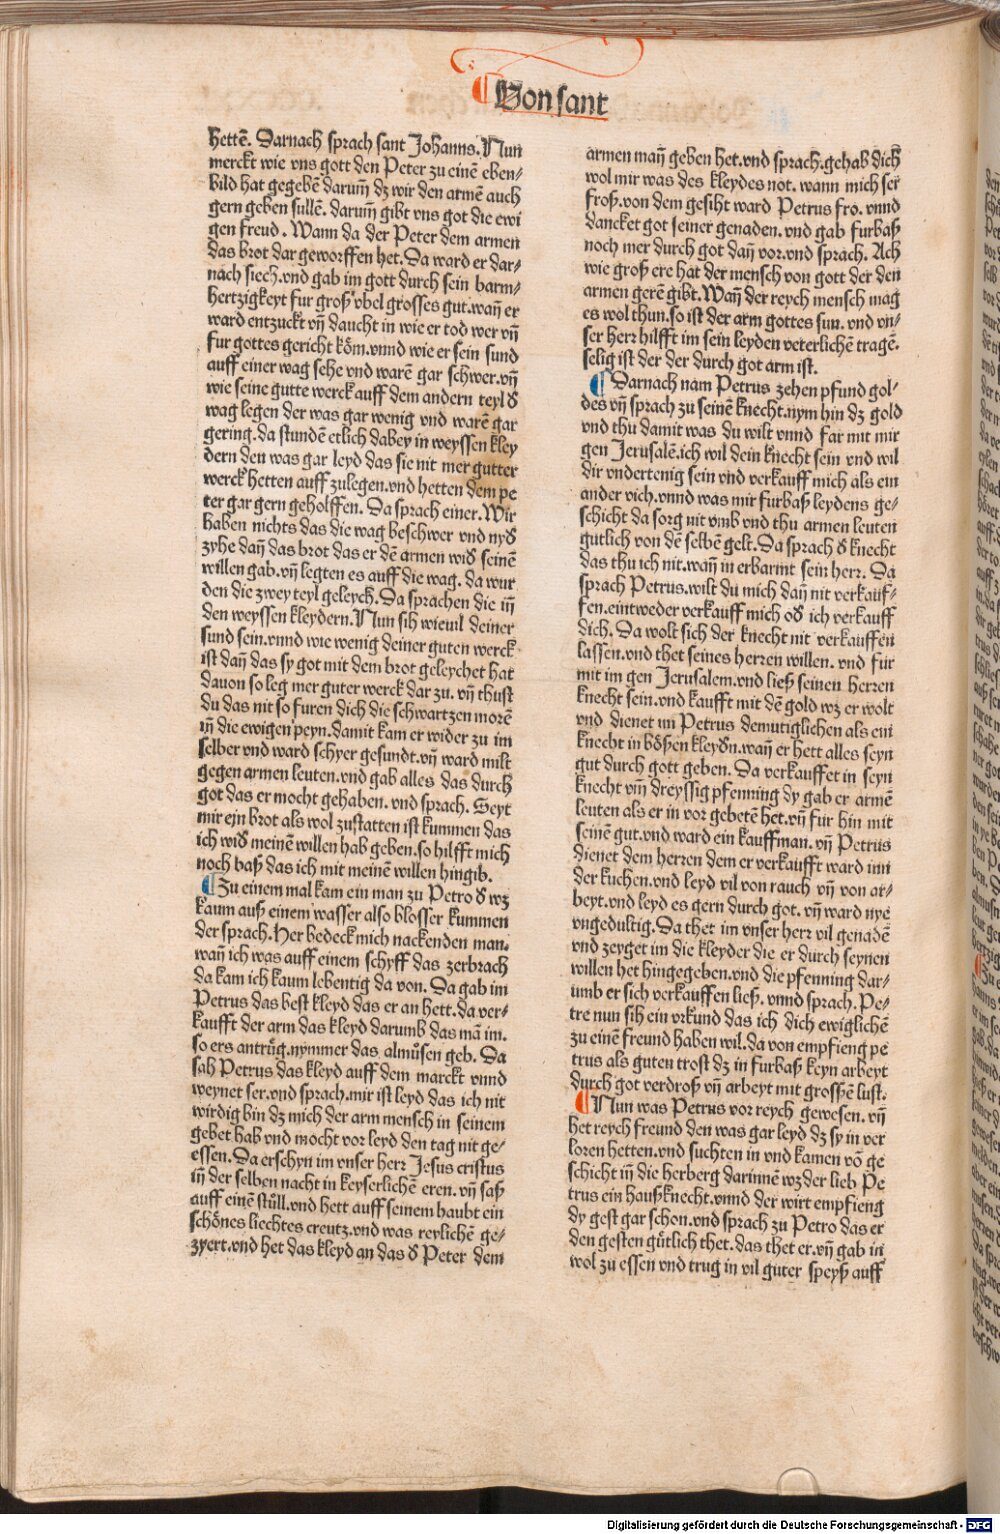 ¶ Von sant
hettẽ. Darnach sprach sant Johanns. Nun
merckt wie vns gott den Peter zu einẽ eben/
bild hat gegebẽ darum̃ dz wir den armẽ auch
gern geben sullẽ. darum̃ gibt vns got die ewi
gen freud. Wann da der Peter dem armen
das brot dar geworffen het. Da ward er dar/
nach siech. vnd gab im gott durch sein barm/
hertzigkeyt fur groß vbel grosses gut. wañ er
ward entzuckt vñ daucht in wie er tod wer vñ
fur gottes gericht kõm. vnnd wie er sein sund
auff einer wag sehe vnd warẽ gar schwer. vñ
wie seine gutte werck auff dem andern teyl đ
wag legen der was gar wenig vnd warẽ gar
gering. da stundẽ etlich dabey in weyssen kley
dern den was gar leyd das sie nit mer gutter
werck hetten auff zulegen. vnd hetten dem pe
ter gar gern geholffen. Da sprach einer. Wir
haben nichts das die wag beschwer vnd nyđ
zyhe dañ das brot das er dẽ armen wiđ seinẽ
willen gab. vñ legten es auff die wag. da wur
den die zwey teyl geleych. Da sprachen die iñ
den weyssen kleydern. Nun sih wieuil deiner
sund sein. vnnd wie wenig deiner guten werck
ist dañ das sy got mit dem brot geleychet hat
dauon so leg mer guter werck dar zu. vñ thust
du das nit so furen dich die schwartzen morẽ
iñ die ewigen peyn. damit kam er wider zu im
selber vnd ward schyer gesundt. vñ ward milt
gegen armen leuten. vnd gab alles das durch
got das er mocht gehaben. vnd sprach. Seyt
mir ejn brot als wol zustatten ist kummen das
ich wiđ meinẽ willen hab geben. so hilfft mich
noch baß das ich mit meinẽ willen hingib.
¶ Zu einem mal kam ein man zu Petro đ wz
kaum auß einem wasser also blosser kummen
der sprach. Her bedeck mich nackenden man.
wañ ich was auff einem schyff das zerbrach
da kam ich kaum lebentig da von. Da gab im
Petrus das best kleyd das er an hett. da ver/
kaufft der arm das kleyd darumb das mã im.
so ers antrůg. nymmer das almůsen geb. Da
sah Petrus das kleyd auff dem marckt vnnd
weynet ser. vnd sprach. mir ist leyd das ich nit
wirdig bin dz mich der arm mensch in seinem
gebet hab vnd mocht vor leyd den tag nit ge/
essen. Da erschyn im vnser herr Jesus cristus
iñ der selben nacht in keyserlichẽ eren. vñ saß
auff einẽ stůll. vnd hett auff seinem haubt ein
schönes liechtes creutz. vnd was reylichẽ ge/
zyert. vnd het das kleyd an das đ Peter dem
armen mañ geben het. vnd sprach. gehab dich
wol mir was des kleydes not. wann mich ser
froß. von dem gesiht ward Petrus fro. vnnd
dancket got seiner genaden. vnd gab furbaß
noch mer durch got dañ vor. vnd sprach. Ach
wie groß ere hat der mensch von gott der den
armen gerẽ gibt. Wañ der reych mensch mag
es wol thun. so ist der arm gottes sun. vnd vn/
ser herr hilfft im sein leyden veterlichẽ tragẽ.
selig ist der der durch got arm ist.
¶ Darnach nam Petrus zehen pfund gol/
des vñ sprach zu seinẽ knecht. nym hin dz gold
vnd thu damit was du wilt vnnd far mit mir
gen Jerusalẽ. ich wil dein knecht sein vnd wil
dir vndertenig sein vnd verkauff mich als ein
ander vich. vnnd was mir furbaß leydens ge/
schicht da sorg nit vmb vnd thu armen leuten
gutlich von dẽ selbẽ gelt. Da sprach đ knecht
das thu ich nit. wañ in erbarmt sein herr. Da
sprach Petrus. wilt du mich dañ nit verkauf/
fen. eintweder verkauff mich ođ ich verkauff
dich. Da wolt sich der knecht nit verkauffen
lassen. vnd thet seines herren willen. vnd fur
mit im gen Jerusalem. vnd ließ seinen herren
knecht sein. vnd kaufft mit dẽ gold wz er wolt
vnd dienet im Petrus demutiglichen als ein
knecht in bößen kleyđn. wañ er hett alles seyn
gut durch gott geben. Da verkauffet in seyn
knecht vm̃ dreyssig pfenning dy gab er armẽ
leuten als er in vor gebetẽ het. vñ fur hin mit
seinẽ gut. vnd ward ein kauffman. vñ Petrus
dienet dem herren dem er verkaufft ward inn
der kuchen. vnd leyd vil von rauch vñ von ar/
beyt. vnd leyd es gern durch got. vñ ward nye
vngedultig. Da thet im vnser herr vil genadẽ
vnd zeyget im die kleyder die er durch seynen
willen het hingegeben. vnd die pfenning dar/
umb er sich verkauffen ließ. vnnd sprach. Pe/
tre nun sih ein vrkund das ich dich ewiglichẽ
zu einẽ freund haben wil. da von empfieng pe
trus als guten trost dz in furbaß keyn arbeyt
durch got verdroß vñ arbeyt mit grossẽ lust.
¶ Nun was Petrus vor reych gewesen. vñ
het reych freund den was gar leyd dz sy in ver
loren hetten. vnd suchten in vnd kamen võ ge
schicht iñ die herberg darinnẽ wz der lieb Pe
trus ein haußknecht. vnnd der wirt empfieng
dy gest gar schon. vnd sprach zu Petro das er
den gesten gůtlich thet. das thet er. vñ gab in
wol zu essen vnd trug in vil guter speyß auff
Digitalisierung gefördert durch die Deutsche Forschungsgemeinschaft - DFG